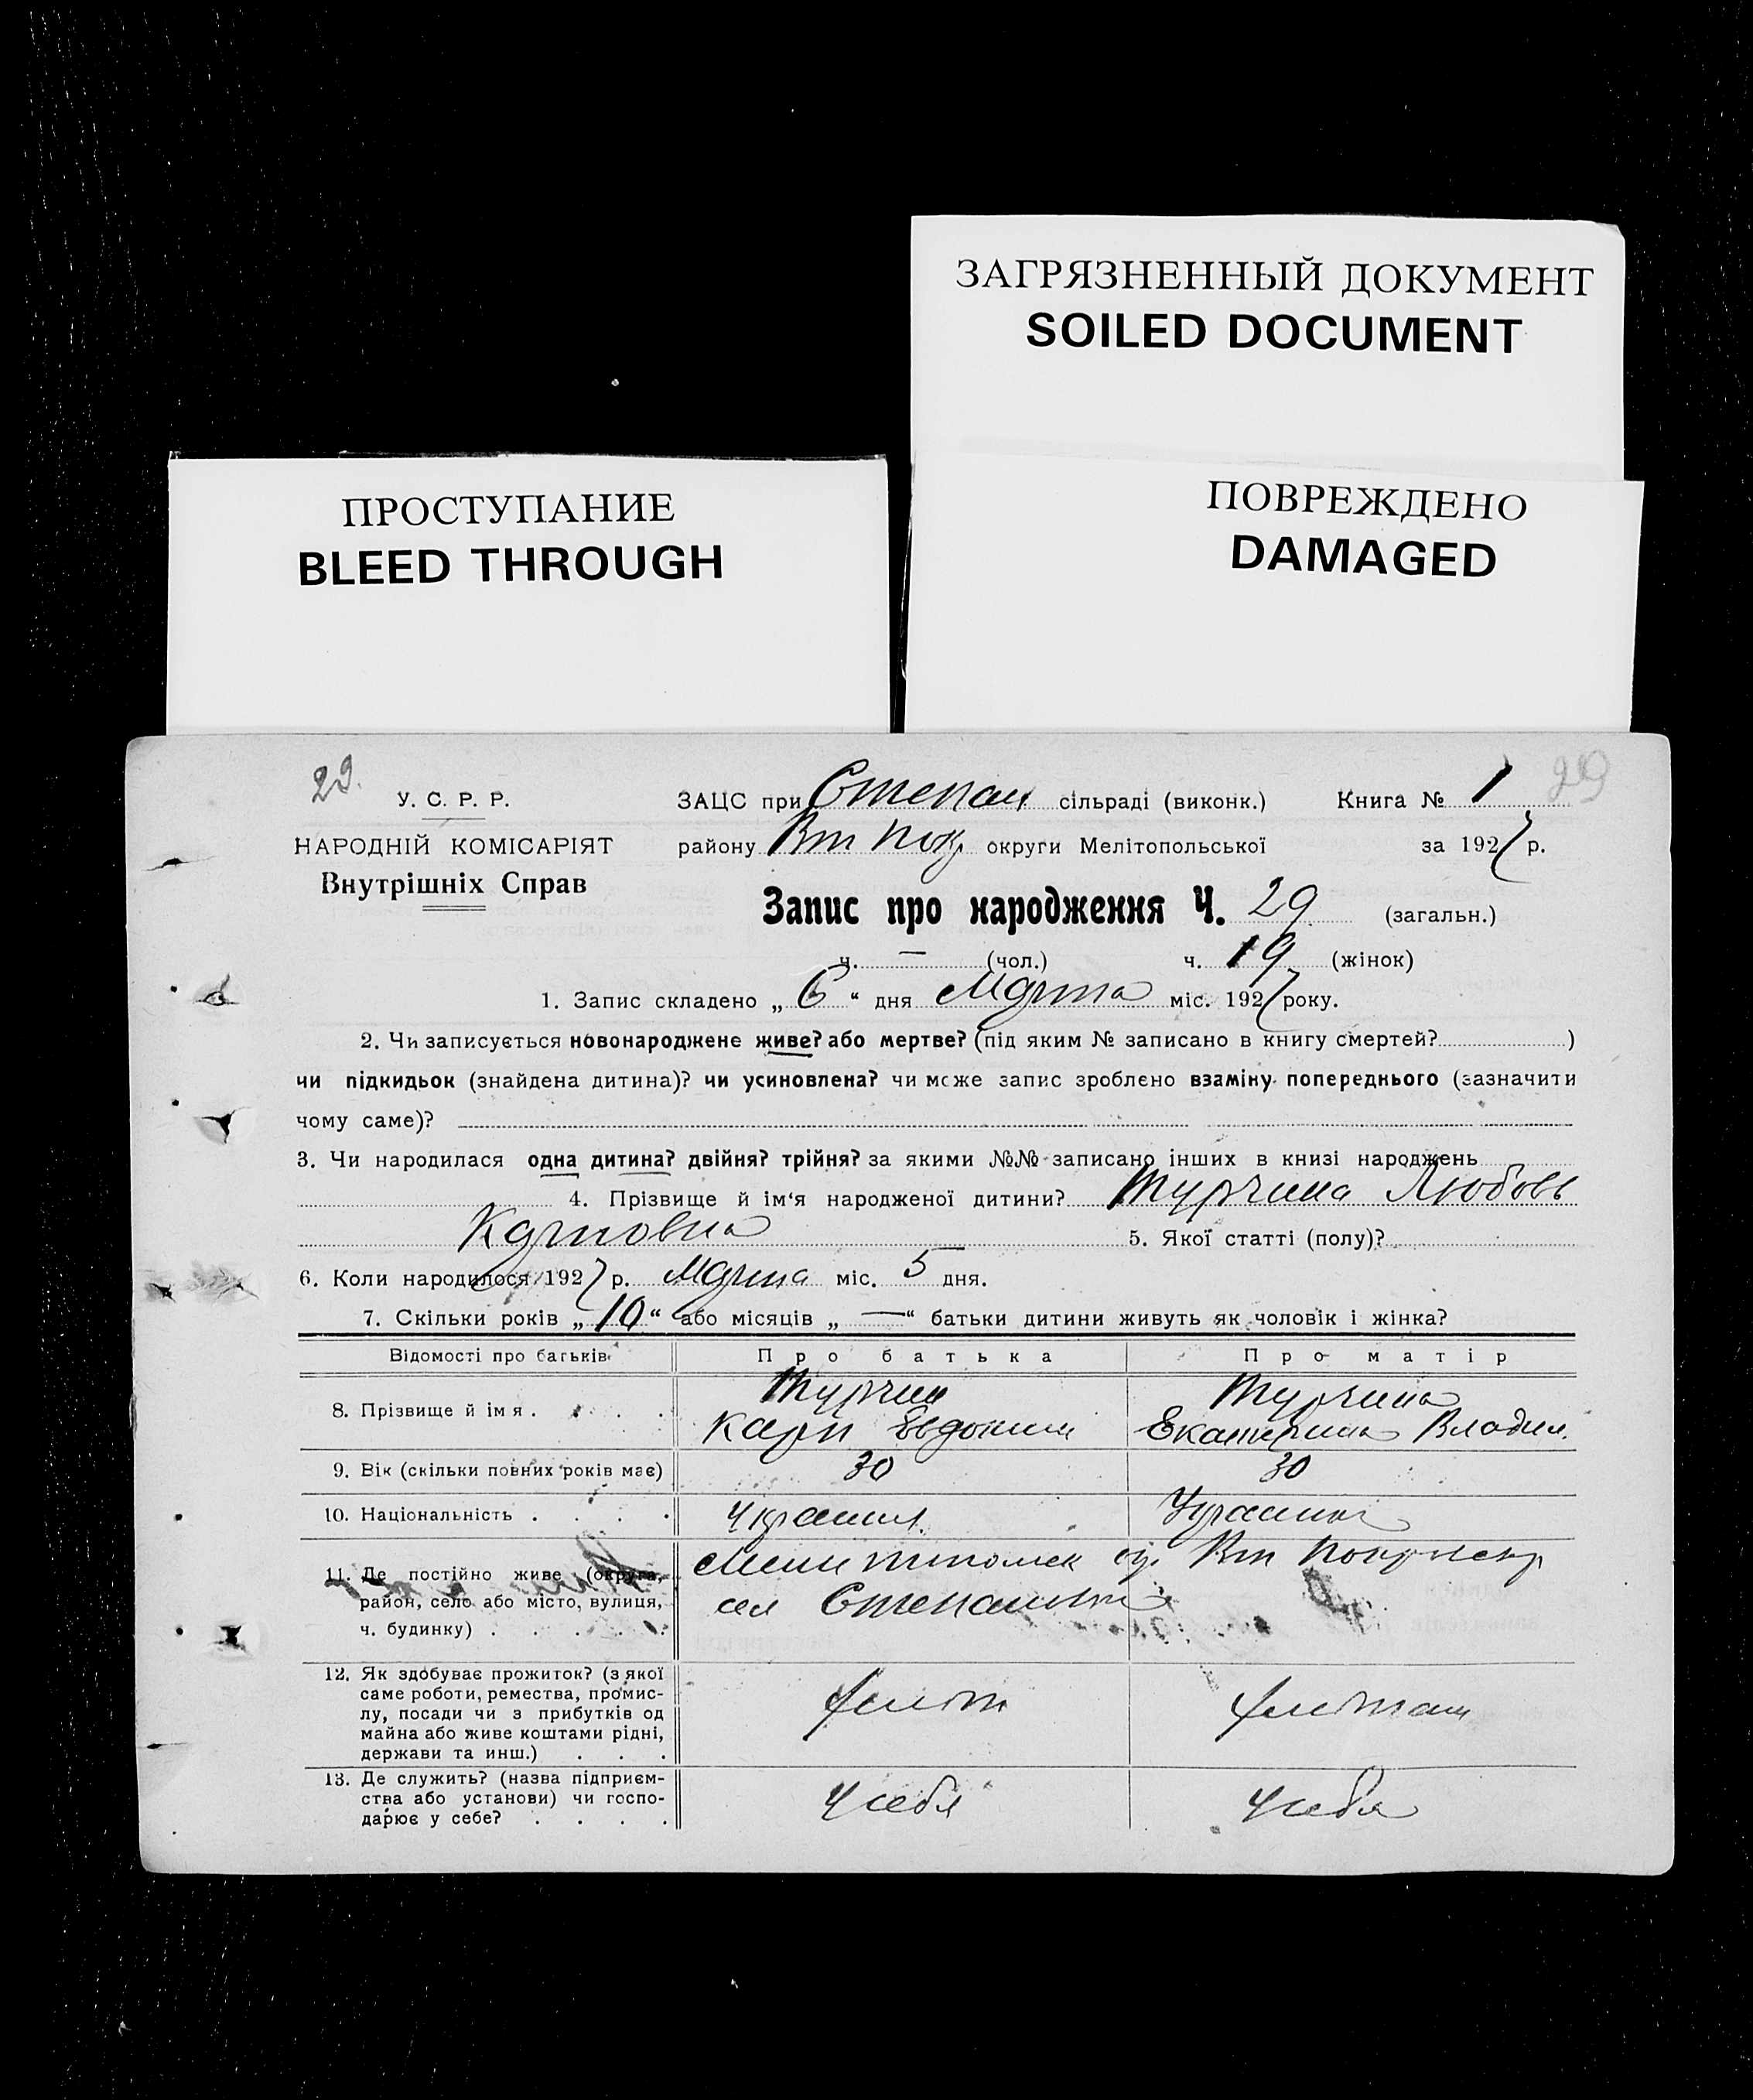 ЗАГРЯЗНЕННЫЙ ДОКУМЕНТ
SOILED DOCUMENT
ПРОСТУПАНИЕ
BLEED THROUGH
ПОВРЕЖДЕНО
DAMAGED
29.
29
У. С. Р. Р.
НАРОДНІЙ КОМІСАРІЯТ
Внутрішніх Справ
ЗАЦС при Степан сільраді (виконк.) Книга № 1
району Вт Пок округи Мелітопольської за 1927 р.
Запис про народження Ч. 29 (загальн.)
ч. — (чол.) ч. 19 (жінок)
1. Запис складено „ 6 “ дня Марта міс. 1927 року.
2. Чи записується новонароджене живе? або мертве? (під яким № записано в книгу смертей? )
чи підкидьок (знайдена дитина)? чи усиновлена? чи може запис зроблено взаміну попереднього (зазначити
чому саме)?
3. Чи народилася одна дитина? двійня? трійня? за якими №№ записано інших в книзі народжень
4. Прізвище й ім‘я народженої дитини? Турчина Любовь
Карповна 5. Якої статті (полу)?
6. Коли народилося 1927 р. Марта міс. 5 дня.
7. Скільки років „ 10 “ або місяців „ — “ батьки дитини живуть як чоловік і жінка?
Відомості про батьків Про батька Про матір
8. Прізвище й імя . . . . Турчин Турчина
Карп Евдоким Екатерина Владим.
9. Вік (скільки повних років має) 30 30
10. Національність . . . . Украин. Украин
11. Де постійно живе (округа, район, село або місто, вулиця, ч. будинку) . . . . . Мелитополск ок. Вт Покровск р
сел Степановка
12. Як здобуває прожиток? (з якої
саме роботи, ремества, промис-
лу, посади чи з прибутків од
майна або живе коштами рідні,
держави та инш.) . . .
13. Де служить? (назва підприєм-
ства або установи) чи госпо-
дарює у себе? . . . .
У себя У себя